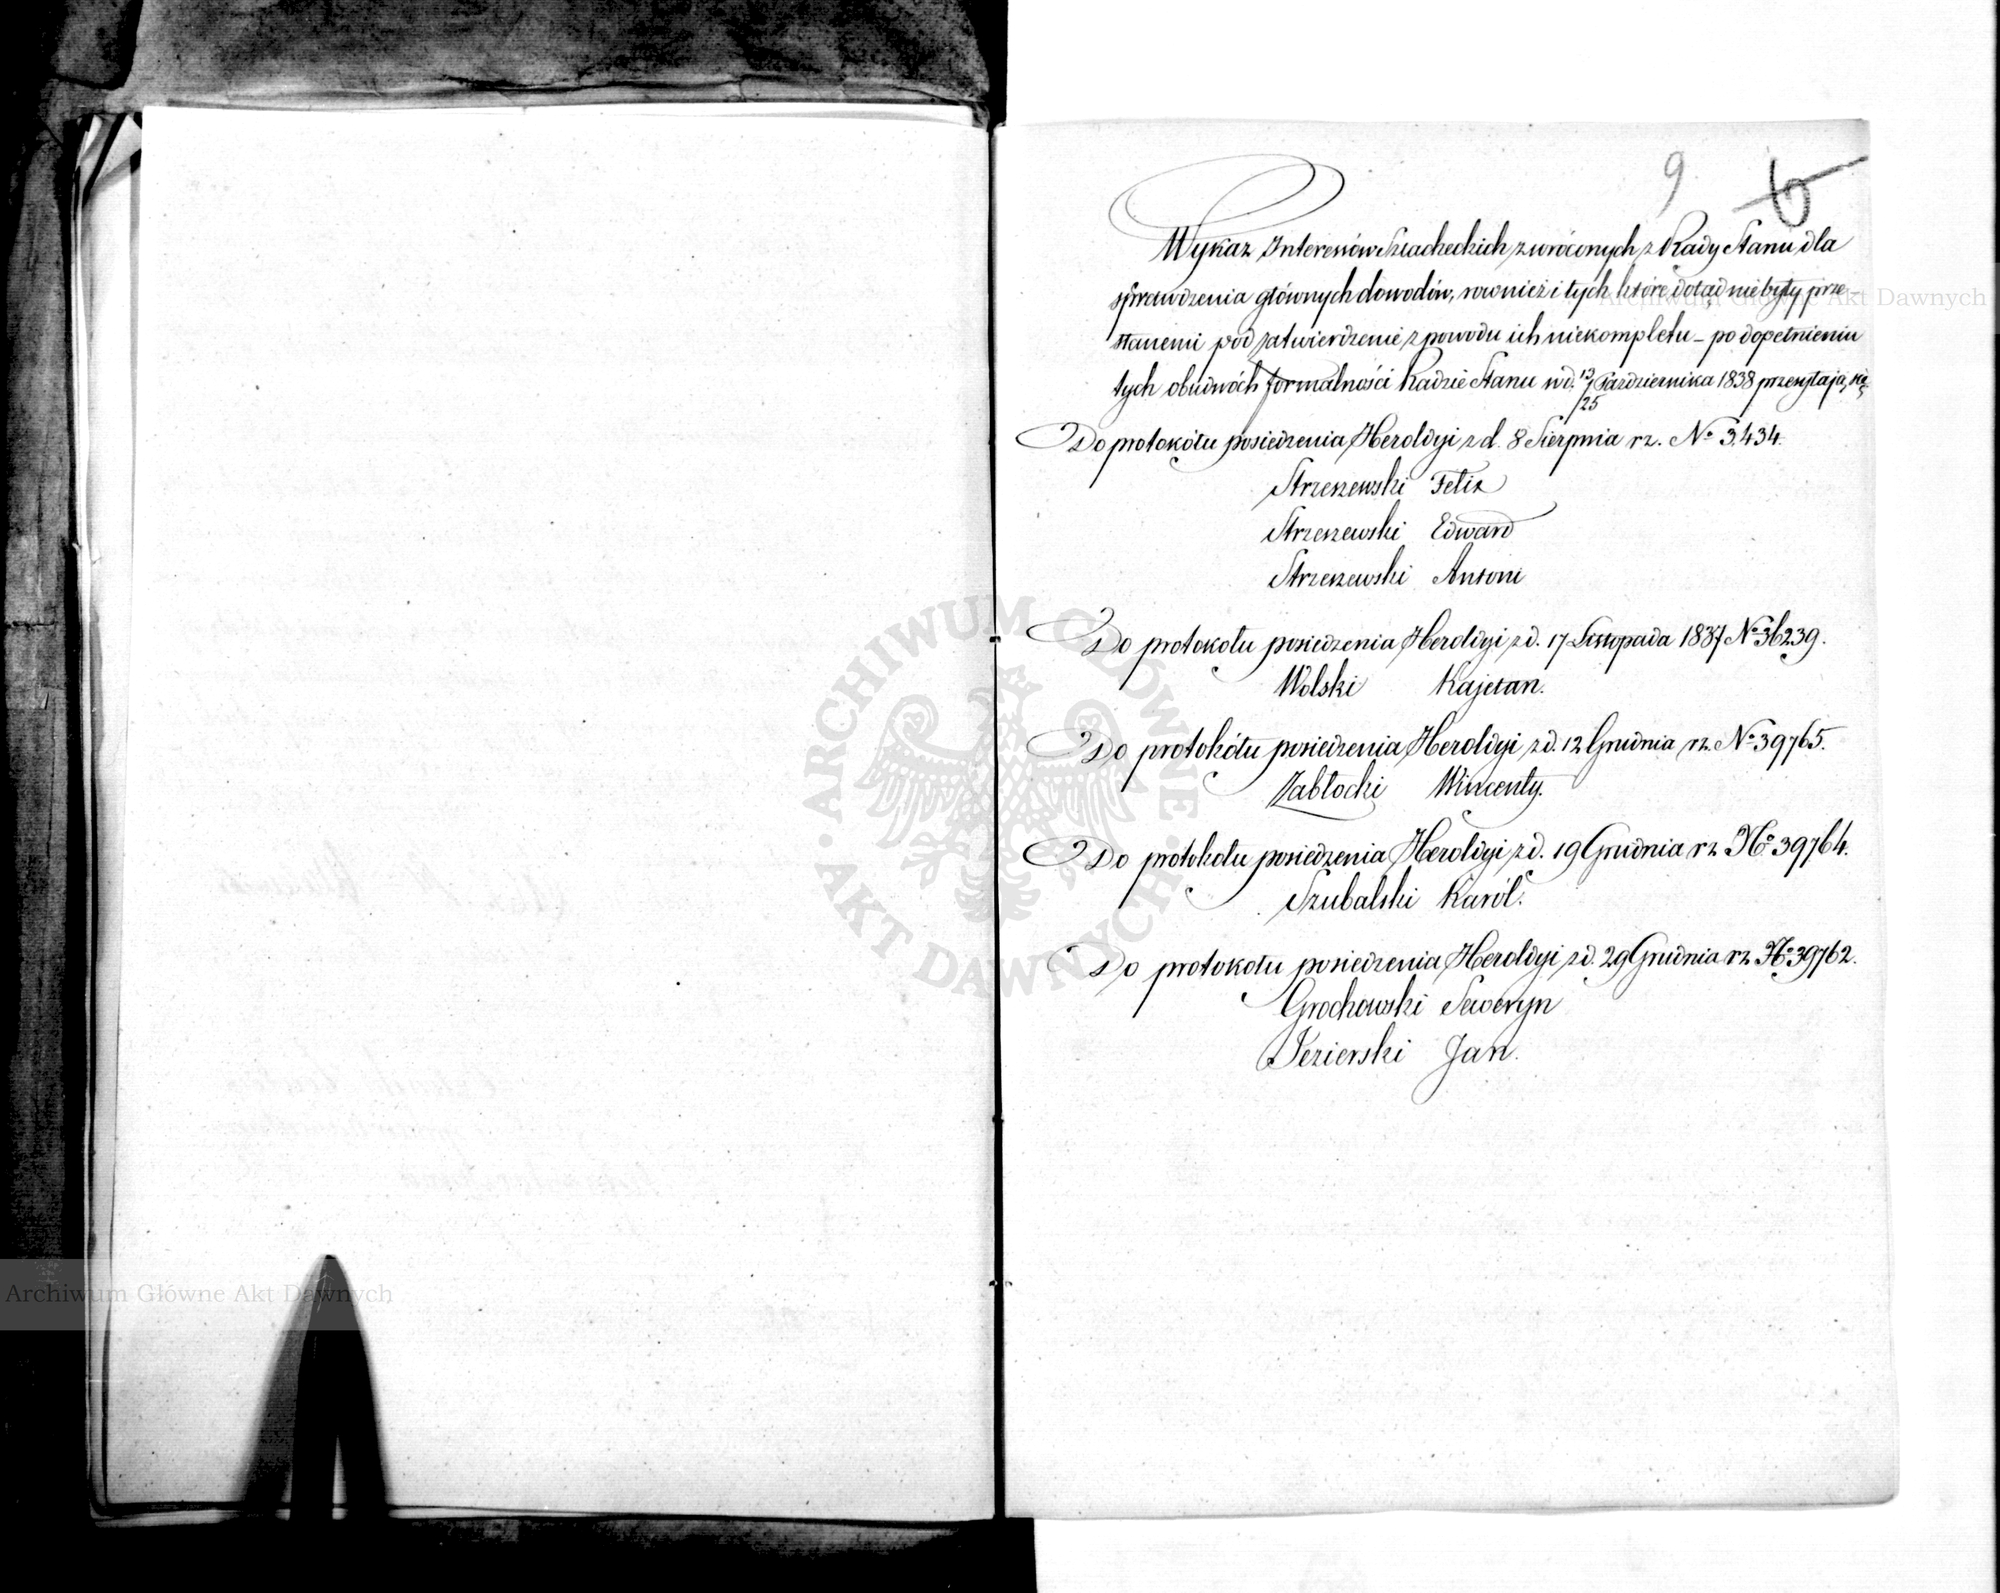 9 6
Wykaz Interesów Szlacheckich zwróconych z Rady Stanu dla
sprawdzenia głównych dowodów, rownież i tych które dotąd nie były prze-
słanemi pod zatwierdzenie z powodu ich niekompletu – po dopełnieniu
tych obudwóch formalności Radzie Stanu w d. 13/25 Października 1838 przesyłają się.
Do protokółu posiedzenia Heroldyi z d. 8 Sierpnia rz. No 3,434.
Strzeszewski Felix
Strzeszewski Edward
Strzeszewski Antoni
Do protokołu posiedzenia Heroldyi z d. 17 Listopada 1837 No 36239.
Wolski Kajetan.
Do protokółu posiedzenia Heroldyi z d. 12 Grudnia rz. No 39765.
Zabłocki Wincenty.
Do protokołu posiedzenia Heroldyi z d. 19 Grudnia rz No 39764.
Szubalski Karól.
Do protokołu posiedzenia Heroldyi z d. 29 Grudnia rz No 39762.
Grochowski Seweryn
Jezierski Jan.
Archiwum Główne Akt Dawnych
Archiwum Główne Akt Dawnych
ARCHIWUM GŁÓWNE · AKT DAWNYCH ·